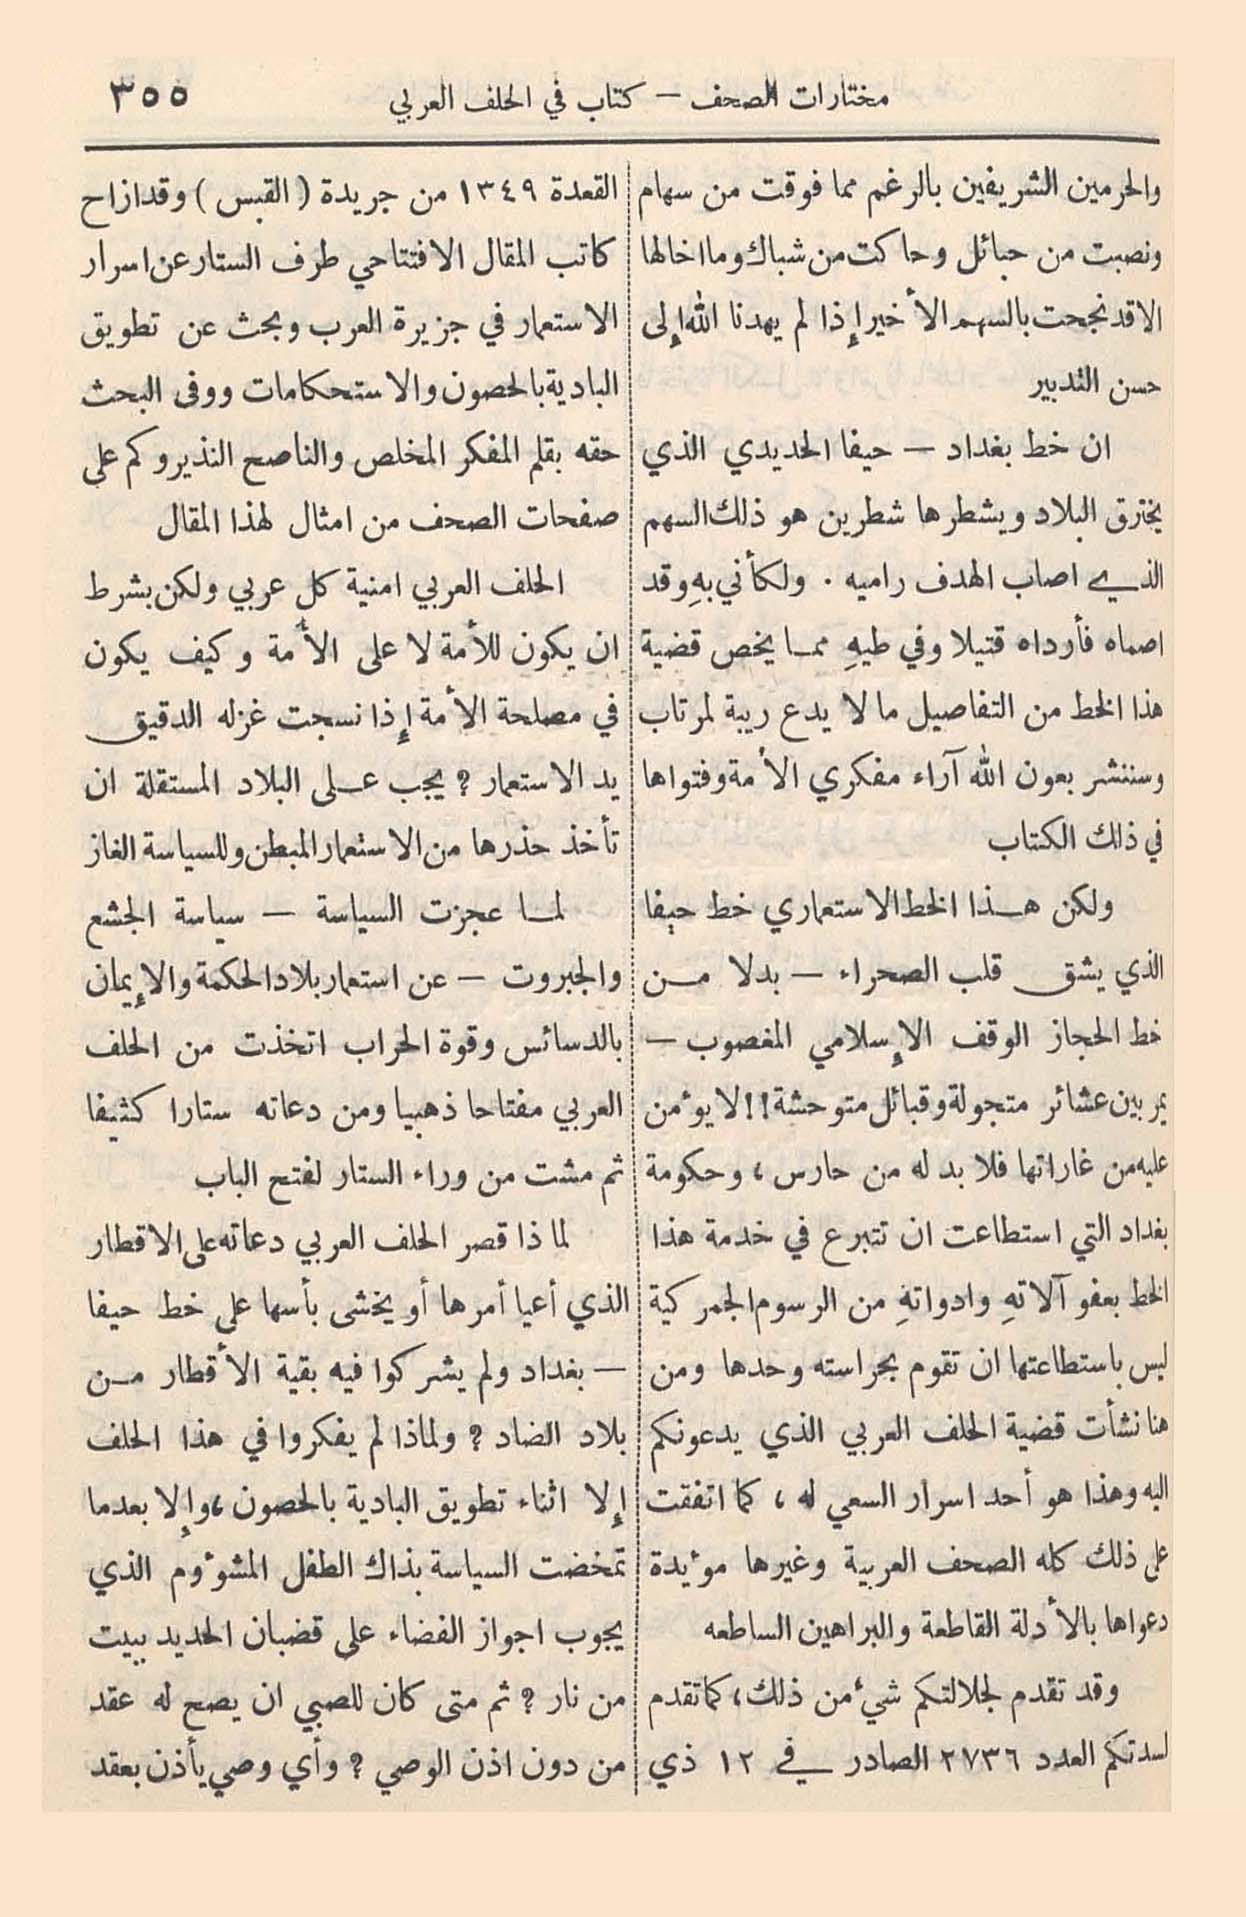 مختارات الصحف – كتاب في الحلف العربي ٣٥٥
والحرمين الشريفين بالرغم مما فوقت من سهام
ونصبت من حبائل وحاكت من شباك وما اخالها
الا قد نجحت بالسهم الأخير إذا لم يهدنا الله إلى
حسن التدبير
ان خط بغداد – حيفا الحديدي الذي
يخترق البلاد ويشطرها شطرين هو ذلك السهم
الذي اصاب الهدف راميه . ولكأني بهِ وقد
اصماه فأرداه قتيلا وفي طيهِ مما يخص قضية
هذا الخط من التفاصيل ما لا يدع ريبة لمرتاب
وسننشر بعون الله آراء مفكري الأمة وفتواها
في ذلك الكتاب
ولكن هذا الخط الاستعماري خط حيفا
الذي يشق قلب الصحراء – بدلا من
خط الحجاز الوقف الإسلامي المغصوب –
يمر بين عشائر متجولة وقبائل متوحشة !! لا يؤمن
عليه من غاراتها فلا بد له من حارس ، وحكومة
بغداد التي استطاعت ان تتبرع في خدمة هذا
الخط بعفو آلاتهِ وادواتهِ من الرسوم الجمركية
ليس باستطاعتها ان تقوم بحراسته وحدها ومن
هنا نشأت قضية الحلف العربي الذي يدعونكم
اليه وهذا هو أحد اسرار السعي له ، كما اتفقت
على ذلك كله الصحف العربية وغيرها مؤيدة
دعواها بالأدلة القاطعة والبراهين الساطعه
وقد تقدم لجلالتكم شيء من ذلك ، كما تقدم
لسدتكم العدد ٢٧٣٦ الصادر في ١٢ ذي
القعدة ١٣٤٩ من جريدة ( القبس ) وقد ازاح
كاتب المقال الافتتاحي طرف الستار عن اسرار
الاستعمار في جزيرة العرب وبحث عن تطويق
البادية بالحصون والاستحكامات ووفى البحث
حقه بقلم المفكر المخلص والناصح النذير وكم على
صفحات الصحف من امثال لهذا المقال
الحلف العربي امنية كل عربي ولكن بشرط
ان يكون للأمة لا على الأمة وكيف يكون
في مصلحة الأمة إذا نسجت غزله الدقيق
يد الاستعمار ؟ يجب على البلاد المستقلة ان
تأخذ حذرها من الاستعمار المبطن وللسياسة الغاز
لما عجزت السياسة – سياسة الجشع
والجبروت – عن استعمار بلاد الحكمة والإيمان
بالدسائس وقوة الحراب اتخذت من الحلف
العربي مفتاحا ذهبيا ومن دعاته ستارا كثيفا
ثم مشت من وراء الستار لفتح الباب
لماذا قصر الحلف العربي دعاته على الاقطار
الذي أعيا أمرها أو يخشى بأسها على خط حيفا
– بغداد ولم يشركوا فيه بقية الأقطار من
بلاد الضاد ؟ ولماذا لم يفكروا في هذا الحلف
إلا اثناء تطويق البادية بالحصون ، وإلا بعدما
تمخضت السياسة بذاك الطفل المشؤوم الذي
يجوب اجواز الفضاء على قضبان الحديد ببيت
من نار ؟ ثم متى كان للصبي ان يصح له عقد
من دون اذن الوصي ؟ وأي وصي يأذن بعقد